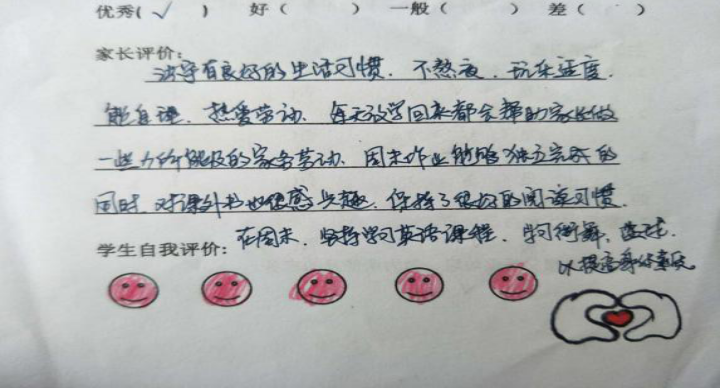 优秀(✓) 好( ) 一般( ) 差( )
家长评价:
该宇有良好的生活习惯.不熬夜.玩乐适度.
能自理.热爱劳动.每天放学回来都会帮助家长做
一些力所能及的家务劳动.周末作业能够独立完成的
同时.对课外书也很感兴趣.保持了很好的阅读习惯.
学生自我评价: 在周末.坚持学习英语课程.学习街舞、
以提高身体素质